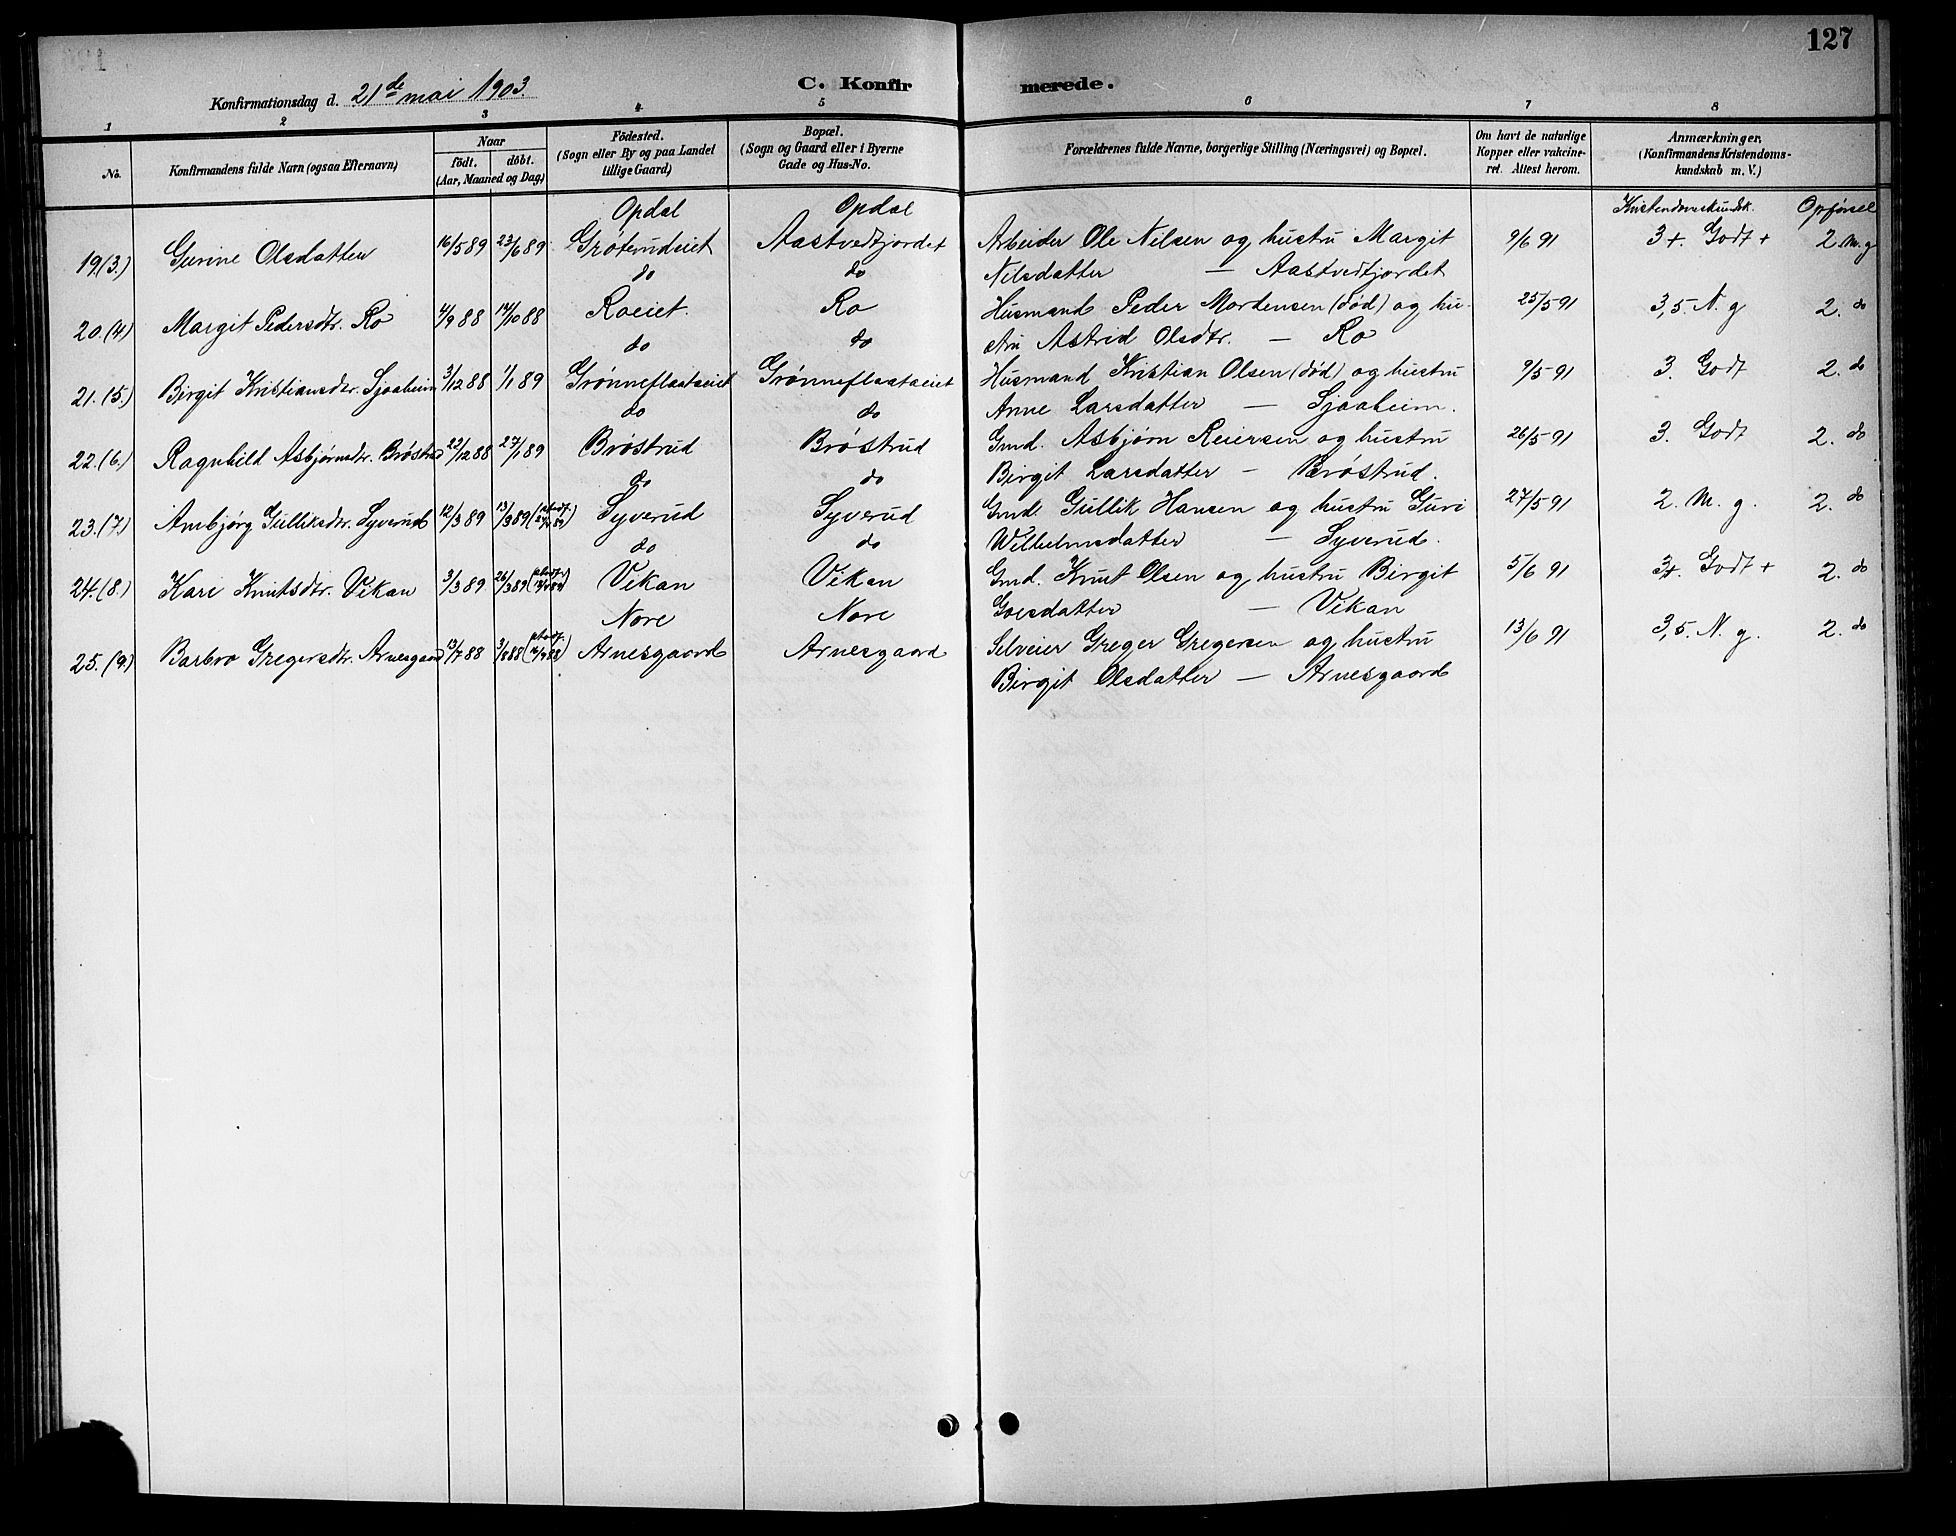 127
C. Konfirmerede.
Konfirmationsdag d. 21de mai 1903.
1 2 3 4 5 6 7 8
No.
Konfirmandens fulde Navn (ogsaa Efternavn)
Naar
födt. döbt.
(Aar, Maaned og Dag)
Födested.
(Sogn eller By og paa Landet
tillige Gaard)
Bopæl.
(Sogn og Gaard eller i Byerne
Gade og Hus-No.
Forældrenes fulde Navne, borgerlige Stilling (Næringsvei) og Bopæl.
Om havt de naturlige
Kopper eller vakcine-
ret. Attest herom.
Anmærkninger.
(Konfirmandens Kristendoms-
kundskab m. V.)
Opdal Opdal Kristendomskundsk. Opförsel
19.(3.) Gurine Olsdatter 16/5 89 23/6 89 Gröterudeiet Aastvedtjordet Arbeider Ole Nilsen og hustru Margit 9/6 91 3+. Godt + 2. M. g
do do Nilsdatter — Aastvedtjordet
20.(4) Margit Pedersdtr. Ro 4/9 88 14/10 88 Roeiet. Ro Husmand Peder Mortensen (död) og hu- 25/5 91 3,5. N. g 2. do
do do stru Astrid Olsdtr. — Ro
21.(5.) Birgit Kristiansdtr. Sjaaheim 3/12 88 1/1 89 Grönneflaataeiet Grönneflaataeiet Husmand Kristian Olsen (död) og hustru 9/5 91 3. Godt 2. do
do do Anne Larsdatter — Sjaaheim.
22.(6.) Ragnhild Asbjörnsdtr. Bröstrud 23/12 88 27/1 89 Bröstrud Bröstrud Gmd. Asbjörn Reiersen og hustru 26/5 91 3. Godt 2. do
do do Birgit Larsdatter — Bröstrud.
23.(7) Ambjörg Gulliksdtr. Syverud 12/3 89 13/3 89 Syverud Syverud Gmd. Gullik Hansen og hustru Guri 27/5 91 2. M. g. 2. do
do do Wilhelmsdatter — Syverud.
24.(8.) Kari Knutsdtr. Vikan 3/3 89 26/3 89 Vikan Vikan Gmd. Knut Olsen og hustru Birgit 5/6 91 3+. Godt + 2. do
Nore Nore Goesdatter — Vikan
25.(9) Barbro Gregersdtr. Arnesgaard 13/7 88 3/8 88 Arnesgaard Arnesgaard Selveier Greger Gregersen og hustru 13/6 91 3,5. N. g. 2. do
Birgit Olsdatter — Arnesgaard